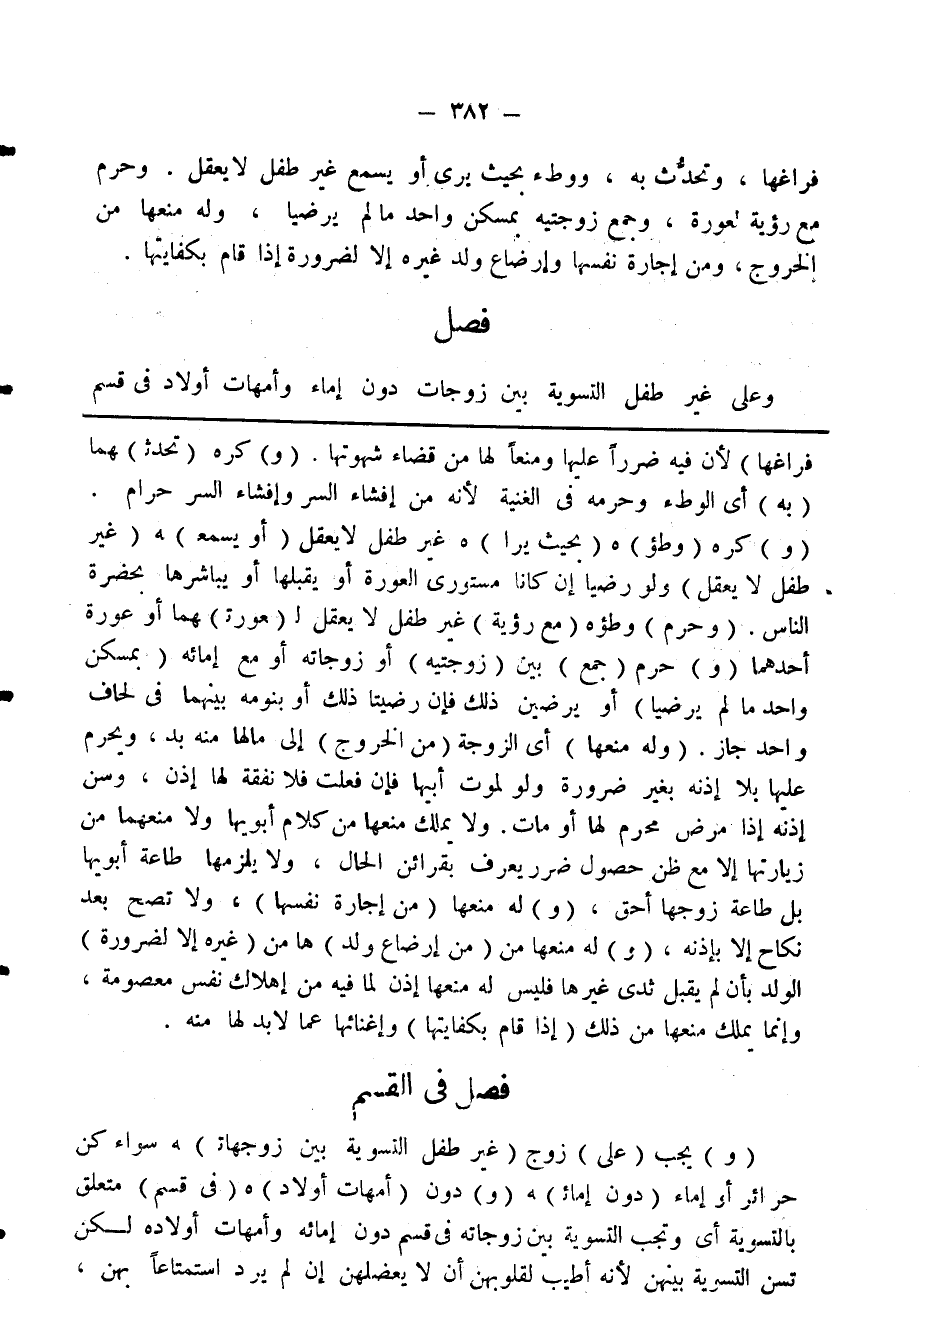 — ٣٨٢ —
فراغها ، وتحدُّث به ، ووطء بحيث يرى أو يسمع غير طفل لا يعقل . وحرم
مع رؤية لعورة ، وجمع زوجتيه بمسكن واحد مالم يرضيا ، وله منعها من
الخروج ، ومن إجارة نفسها وإرضاع ولد غيره إلا لضرورة إذا قام بكفايتها .
فصل
وعلى غير طفل التسوية بين زوجات دون إماء وأمهات أولاد فى قسم
فراغها ) لأن فيه ضرراً عليها ومنعاً لها من قضاء شهوتها . ( و ) كره ( تحدث ) هما
( به ) أى الوطء وحرمه فى الغنية لأنه من إفشاء السر وإفشاء السر حرام .
( و ) كره ( وطؤ ) ه ( بحيث يرا ) ه غير طفل لايعقل ( أو يسمعـ ) ـه ( غير
طفل لا يعقل ) ولو رضيا إن كانا مستورى العورة أو يقبلها أو يباشرها بحضرة
الناس . ( وحرم ) وطؤه ( مع رؤية ) غير طفل لا يعقل لـ ( عورتـ ) هما أو عورة
أحدهما ( و ) حرم ( جمع ) بين ( زوجتيه ) أو زوجاته أو مع إمائه ( بمسكن
واحد ما لم يرضيا ) أو يرضين ذلك فإن رضيتا ذلك أو بنومه بينهما فى لحاف
واحد جاز . ( وله منعها ) أى الزوجة ( من الخروج ) إلى مالها منه بد ، ويحرم
عليها بلا إذنه بغير ضرورة ولو لموت أبيها فإن فعلت فلا نفقة لها إذن ، وسن
إذنه إذا مرض محرم لها أو مات . ولا يملك منعها من كلام أبويها ولا منعهما من
زيارتها إلا مع ظن حصول ضرر يعرف بقرائن الحال ، ولا يلزمها طاعة أبويها
بل طاعة زوجها أحق ، ( و ) له منعها ( من إجارة نفسها ) ، ولا تصح بعد
نكاح إلا بإذنه ، ( و ) له منعها من ( من إرضاع ولد ) ها من ( غيره إلا لضرورة )
الولد بأن لم يقبل ثدى غيرها فليس له منعها إذن لما فيه من إهلاك نفس معصومة ،
وإنما يملك منعها من ذلك ( إذا قام بكفايتها ) وإغنائها عما لابد لها منه .
فصل فى القسم
( و ) يجب ( على ) زوج ( غير طفل التسوية بين زوجاتـ ) ـه سواء كن
حرائر أو إماء ( دون إمائـ ) ـه ( و ) دون ( أمهات أولاد ) ه ( فى قسم ) متعلق
بالتسوية أى وتجب التسوية بين زوجاته فى قسم دون إمائه وأمهات أولاده لـكن
تسن التسوية بينهن لأنه أطيب لقلوبهن أن لا يعضلهن إن لم يرد استمتاعاً بهن ،